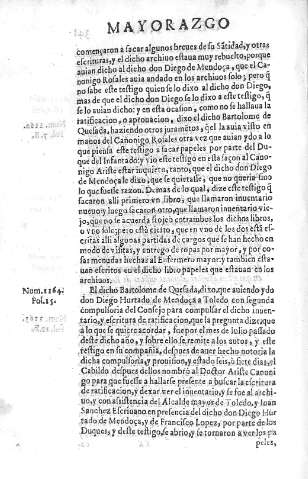 MAYORAZGO
començaron a sacar algunos breues de su Sãtidad, y otras
escrituras, y el dicho archiuo estaua muy rebuelto, porque
auian dicho al dicho don Diego de Mendoça, que el Ca-
nonigo Rosales auia andado en los archiuos solo; pero q̃
no sabe este testigo quien se lo dixo al dicho don Diego,
mas de que el dicho don Diego se lo dixo a este testigo, q̃
se lo auian dicho: y en esta ocasion, como no se hallaua la
ratificacion, o aprouacion, dixo el dicho Bartolome de
Quesada, haziendo otros juramẽtos, q̃ el la auia visto en
manos del Canonigo Rosales otra vez que auian ydo a lo
que piensa este testigo a sacar papeles por parte del Du-
que del Infantado: y vio este testigo en esta façon al Cano-
nigo Ariste estar inquieto, tanto, que el dicho don Diego
de Mendoça le dixo, que se quietasse, que no queria sino
lo que fuesse razon. Demas de lo qual, dize este testigo q̃
sacaron alli primero vn libro, que llamaron inuentario
nueuo y luego sacaron otro, que llamaron inuentario vie-
jo, que no se acuerda si ojeò entrambos los dichos libros,
o vno solo; pero està cierto, que en vno de los dos està es-
critas alli algunas partidas de cargos que se han hecho en
modo de visitas, y entrego de ropas por mayor, y por co-
sas menudas hechas al Enfermero mayor: y tambien esta-
uan escritos en el dicho libro papeles que estauan en los
archiuos.
Num. 1164.
Fol. 15.
El dicho Bartolome de Quesada, dixo, que auiendo ydo
don Diego Hurtado de Mendoça a Toledo con segunda
compulsoria del Consejo para compulsar el dicho inuen-
tario, y escritura de ratificacion, que la pregunta dize, que
a lo que se quiere acordar, fue por el mes de Iulio passado
deste dicho año, y sobre ello se remite a los autos, y este
testigo en su compañia, despues de auer hecho notoria la
dicha compulsoria, y prouision, y estado seis, ò siete dias, el
Cabildo despues dellos nombrò al Doctor Ariste Canoni-
go para que fuesse a hallarse presente a buscar la escritura
de ratificacion, y dexar ver el inuentario, y se fue al archi-
uo, y con asistencia del Alcalde mayor de Toledo, y Iuan
Sanchez Escriuano en presencia del dicho don Diego Hur
tado de Mendoça, y de Francisco Lopez, por parte de los
Duques, y deste testigo, se abrio, y se tornaron a ver los pa
peles,